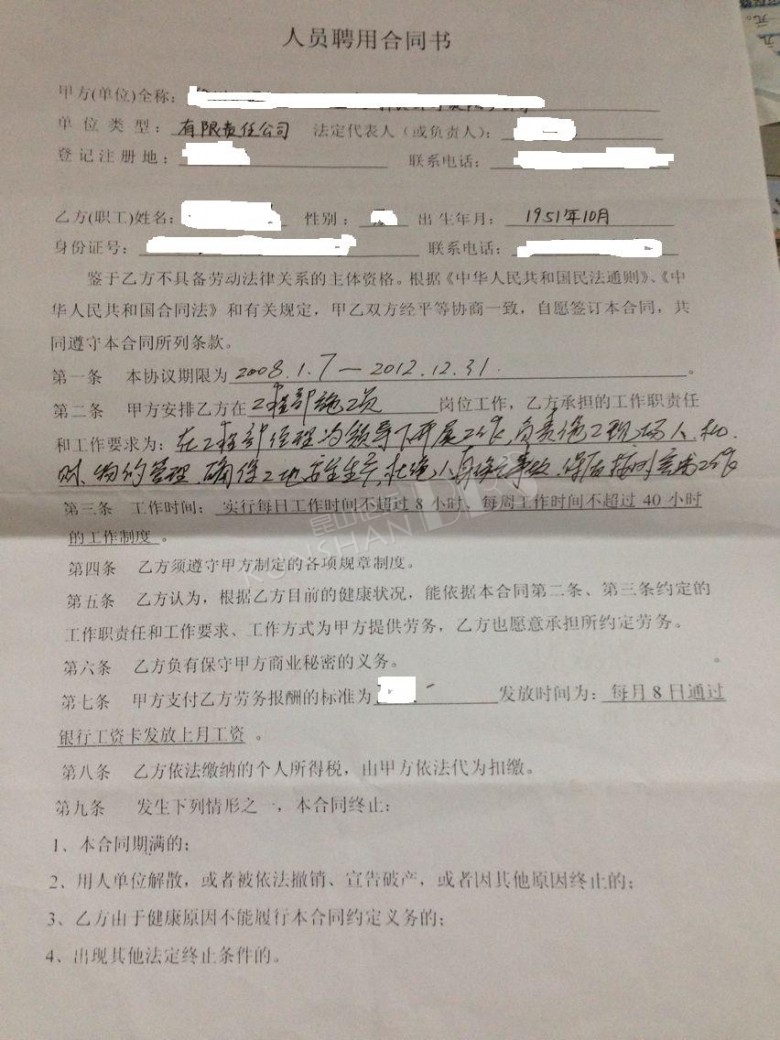 人员聘用合同书
甲方(单位)全称：
单位类型：有限责任公司 法定代表人（或负责人）：
登记注册地： 联系电话：
乙方(职工)姓名： 性别： 出生年月：1951年10月
身份证号： 联系电话：
鉴于乙方不具备劳动法律关系的主体资格。根据《中华人民共和国民法通则》、《中
华人民共和国合同法》和有关规定，甲乙双方经平等协商一致，自愿签订本合同，共
同遵守本合同所列条款。
第一条 本协议期限为2008.1.7—2012.12.31.。
第二条 甲方安排乙方在工程部施工员岗位工作，乙方承担的工作职责任
和工作要求为：在工程部经理的领导下开展工作,负责施工现场人、机、
财、物的管理,确保工地安全生产,杜绝人身伤亡事故,
第三条 工作时间：实行每日工作时间不超过 8 小时、每周工作时间不超过 40 小时
的工作制度。
KUNSHAN
第四条 乙方须遵守甲方制定的各项规章制度。
第五条 乙方认为，根据乙方目前的健康状况，能依据本合同第二条、第三条约定的
工作职责任和工作要求、工作方式为甲方提供劳务，乙方也愿意承担所约定劳务。
第六条 乙方负有保守甲方商业秘密的义务。
第七条 甲方支付乙方劳务报酬的标准为 发放时间为：每月 8 日通过
银行工资卡发放上月工资。
第八条 乙方依法缴纳的个人所得税，由甲方依法代为扣缴。
第九条 发生下列情形之一，本合同终止：
1、本合同期满的；
2、用人单位解散，或者被依法撤销、宣告破产，或者因其他原因终止的；
3、乙方由于健康原因不能履行本合同约定义务的；
4、出现其他法定终止条件的。